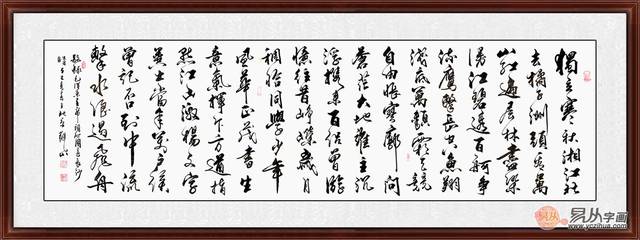 獨立寒秋湘江北
去橘子洲頭看萬
山紅遍層林盡染
漫江碧透百舸爭
流鷹擊長空魚翔
淺底萬類霜天競
自由悵寥廓問
蒼茫大地誰主沉
浮攜來百侶曾游
憶往昔崢嶸歲月
稠恰同學少年
風華正茂書生
意氣揮斥方遒指
點江山激揚文字
糞土當年萬戶侯
曾記否到中流
擊水浪遏飛舟
易从字画
www.yczihua.com